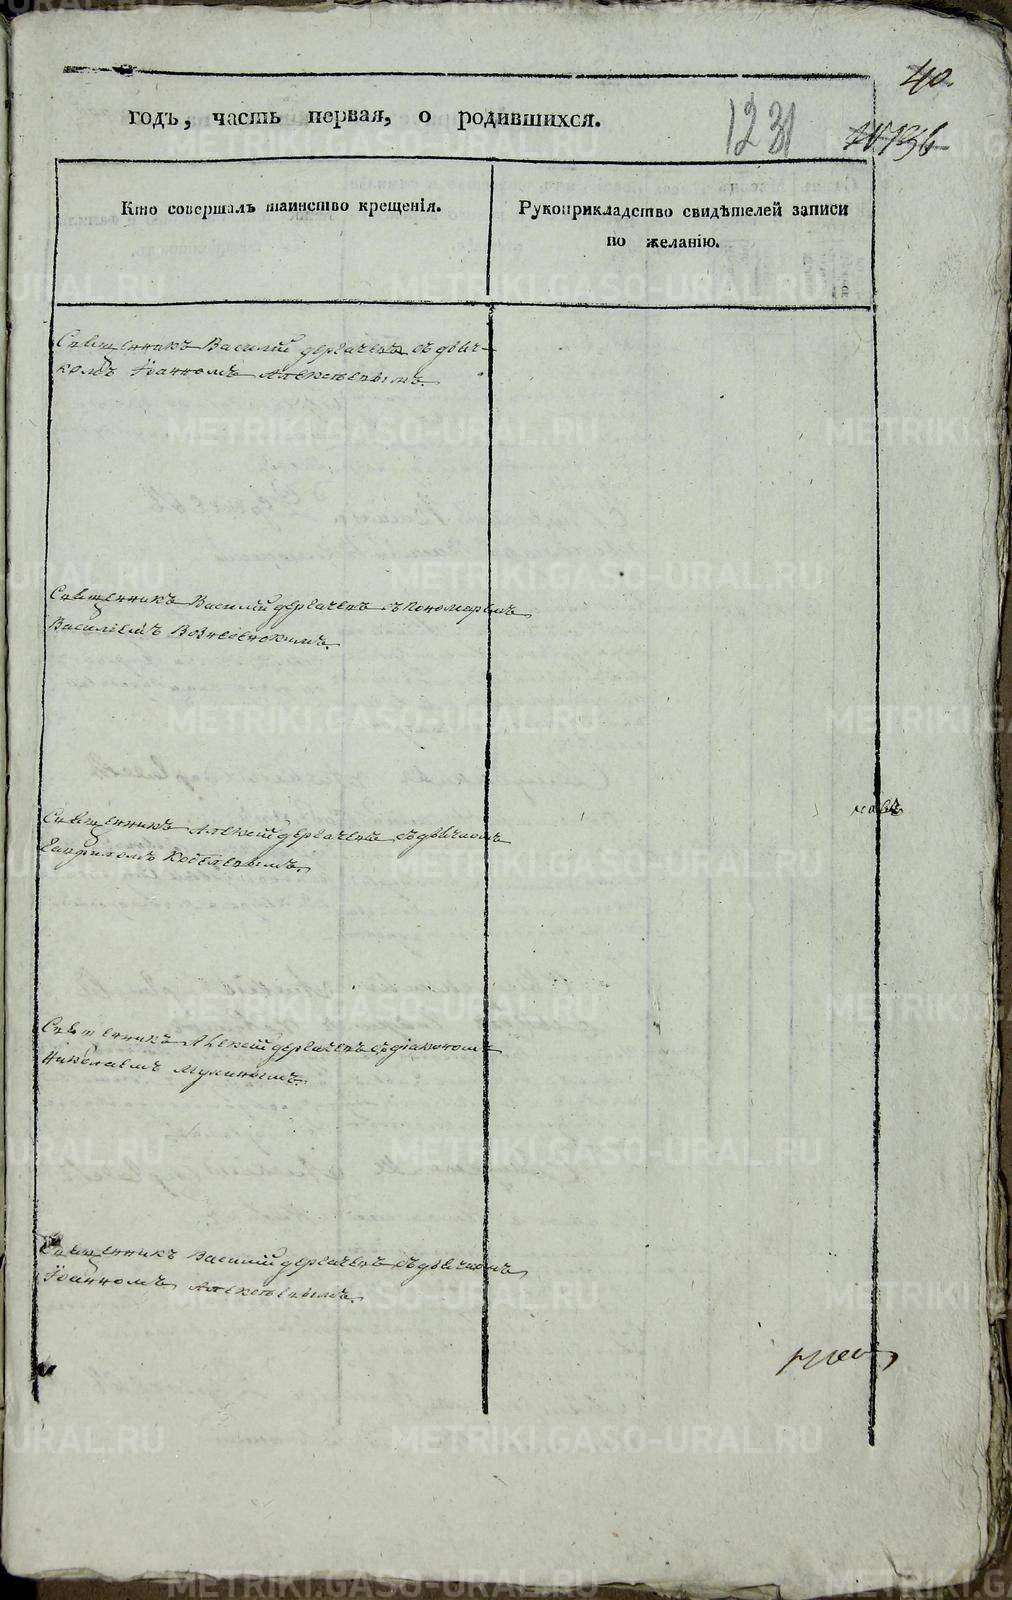 40.
годъ, часть первая, о родившихся.
1231
196
Кто совершалъ таинство крещенія.
Рукоприкладство свидѣтелей записи
по желанію.
Священникъ Василій Дергачевъ съ дьяч-
комъ Іоанномъ Алексѣевымъ.
Священникъ Василій Дергачевъ съ Пономаремъ
Василіемъ Вознесенскимъ.
Священникъ Алексій Дергачевъ съ дьячкомъ
Гавриломъ Кобелевымъ.
Священникъ Алексій Дергачевъ съ діакономъ
Николаемъ Мухинымъ.
Священникъ Василій Дергачевъ съ дьячкомъ
Іоанномъ Алексѣевымъ.
METRIKI.GASO-URAL.RU